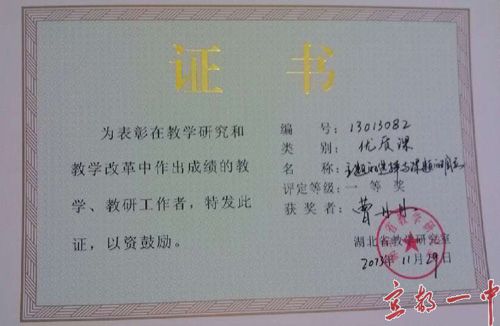 证书
为表彰在教学研究和
教学改革中作出成绩的教
学、教研工作者，特发此
证，以资鼓励。
编号：13013082
类别：优质课
名称：主题的选择与课题的确立
评定等级：一等奖
获奖者：曹丹丹
湖北省教学研究室
2013年11月29日
宜都一中